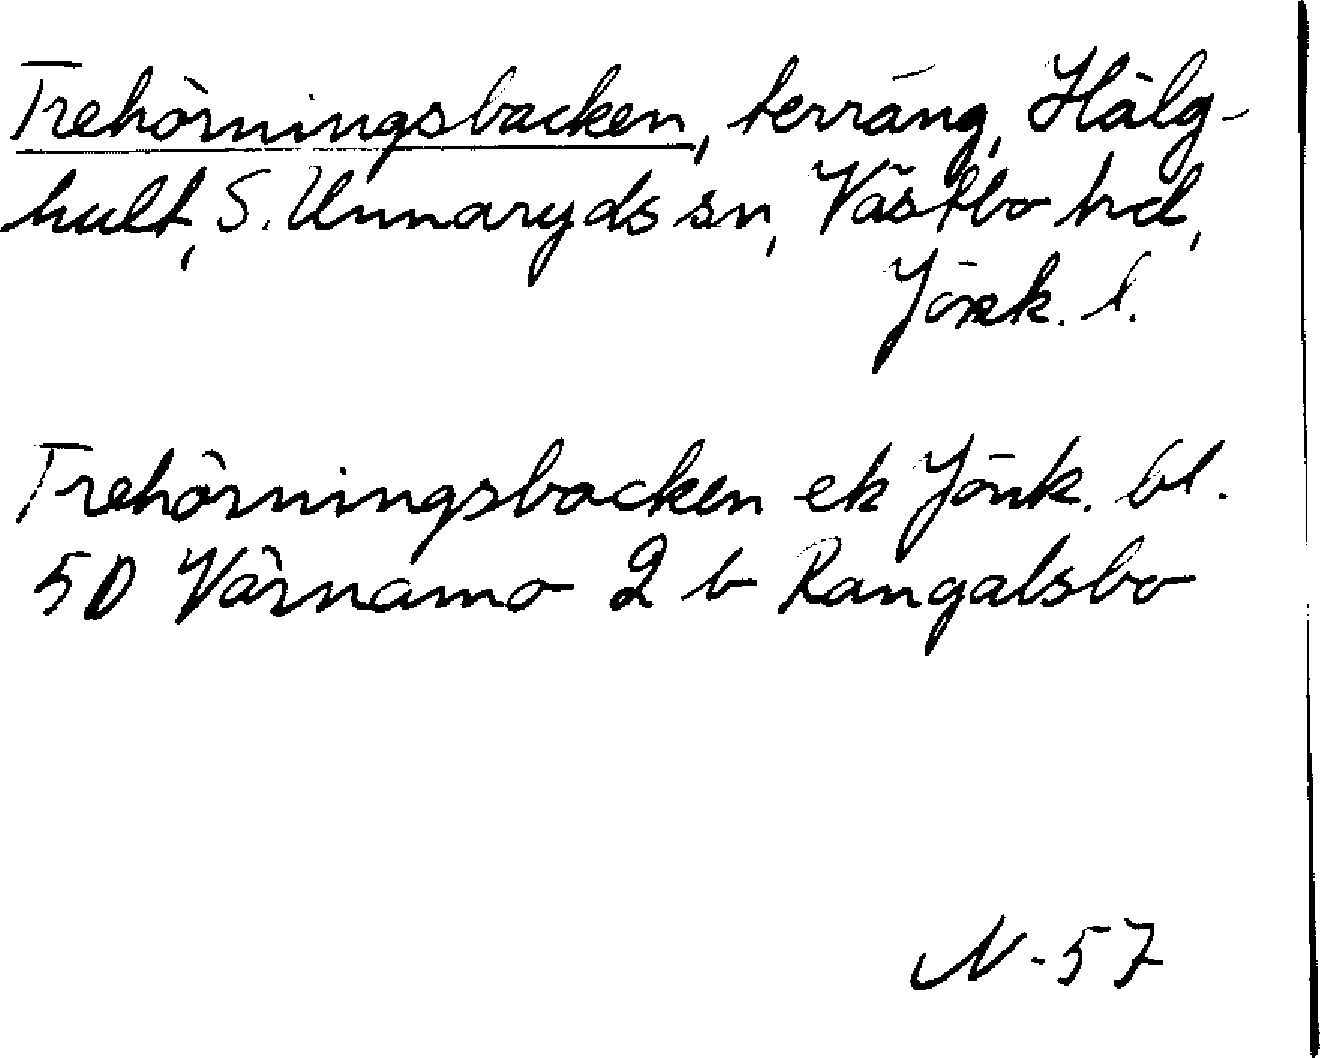 Trehörningsbacken, terräng, Hälg-
hult, S. Unnaryds sn, Västbo hd,
Jönk. l.
Trehörningsbacken ek Jönk. bl.
5D Värnamo 2 b Rangalsbo
N-57